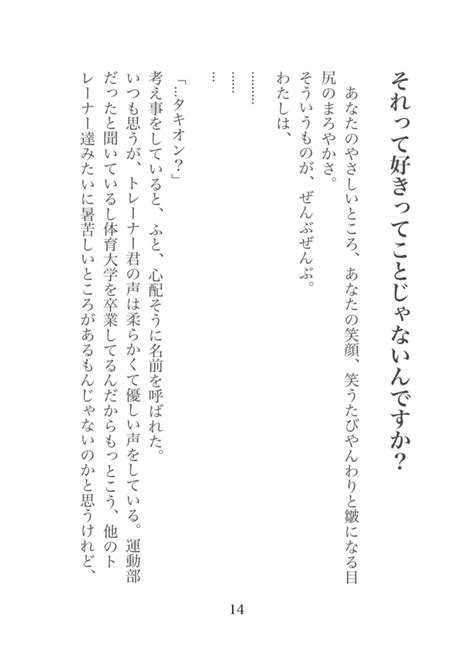 それって好きってことじゃないんですか?
あなたのやさしいところ、あなたの笑顔、笑うたびやんわりと皺になる目
尻のまろやかさ。
そういうものが、ぜんぶぜんぶ。
わたしは、
………
……
…
「…タキオン?」
考え事をしていると、ふと、心配そうに名前を呼ばれた。
いつも思うが、トレーナー君の声は柔らかくて優しい声をしている。運動部
だったと聞いているし体育大学を卒業してるんだからもっとこう、他のト
レーナー達みたいに暑苦しいところがあるもんじゃないのかと思うけれど、
14